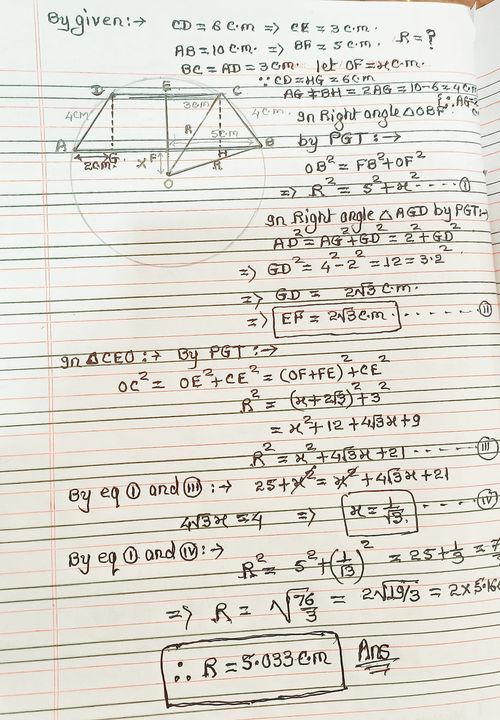 By given:→ CD = 6 C.m. => CE = 3 c.m.
AB = 10 c.m. => BF = 5 c.m. R = ?
BC = AD = 3 c.m. let OF = x c.m.
∵ CD = HG = 6 c.m
AG + BH = 2AG = 10-6 = 4 c.m
D E C
4CM 3cm 4cm.
A 2cm. G X F R 5cm H B
R
O
In Right angle △OBF
by PGT:→
OB² = FB² + OF²
=> R² = 5² + x² ----- ①
In Right angle △ AGD by PGT:→
AD² = AG² + GD² = 2² + GD²
=> GD² = 4² - 2² = 12 = 3·2²
=> GD = 2√3 c.m.
=> EF = 2√3 c.m. ------- ⓘⓘ
In △CEO :→ By PGT :→
OC² = OE² + CE² = (OF+FE)² + CE²
R² = (x+2√3)² + 3²
= x² + 12 + 4√3x + 9
R² = x² + 4√3x + 21 ------ ⓘⓘⓘ
By eq ① and ⓘⓘⓘ :→ 25 + x² = x² + 4√3x + 21
4√3x = 4 => x = 1/√3. ------ ⓘⓥ
By eq ① and ⓘⓥ :→ R² = 5² + (1/√3)² = 25 + 1/3 =
=> R = √76/3 = 2√19/3 = 2×
∴ R = 5.033 c.m Ans